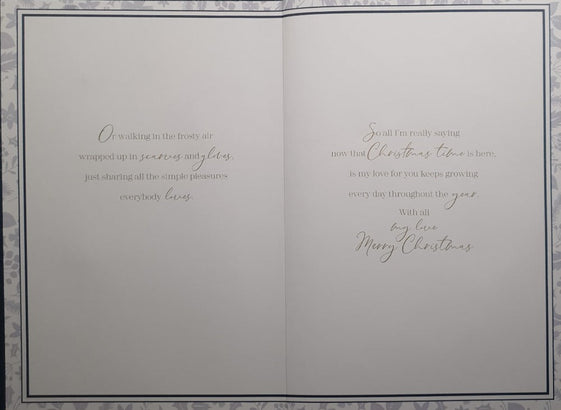 Or walking in the frosty air
wrapped up in scarves and gloves,
just sharing all the simple pleasures
everybody loves.
So all I'm really saying
now that Christmas time is here,
is my love for you keeps growing
every day throughout the year.
With all
my love
Merry Christmas